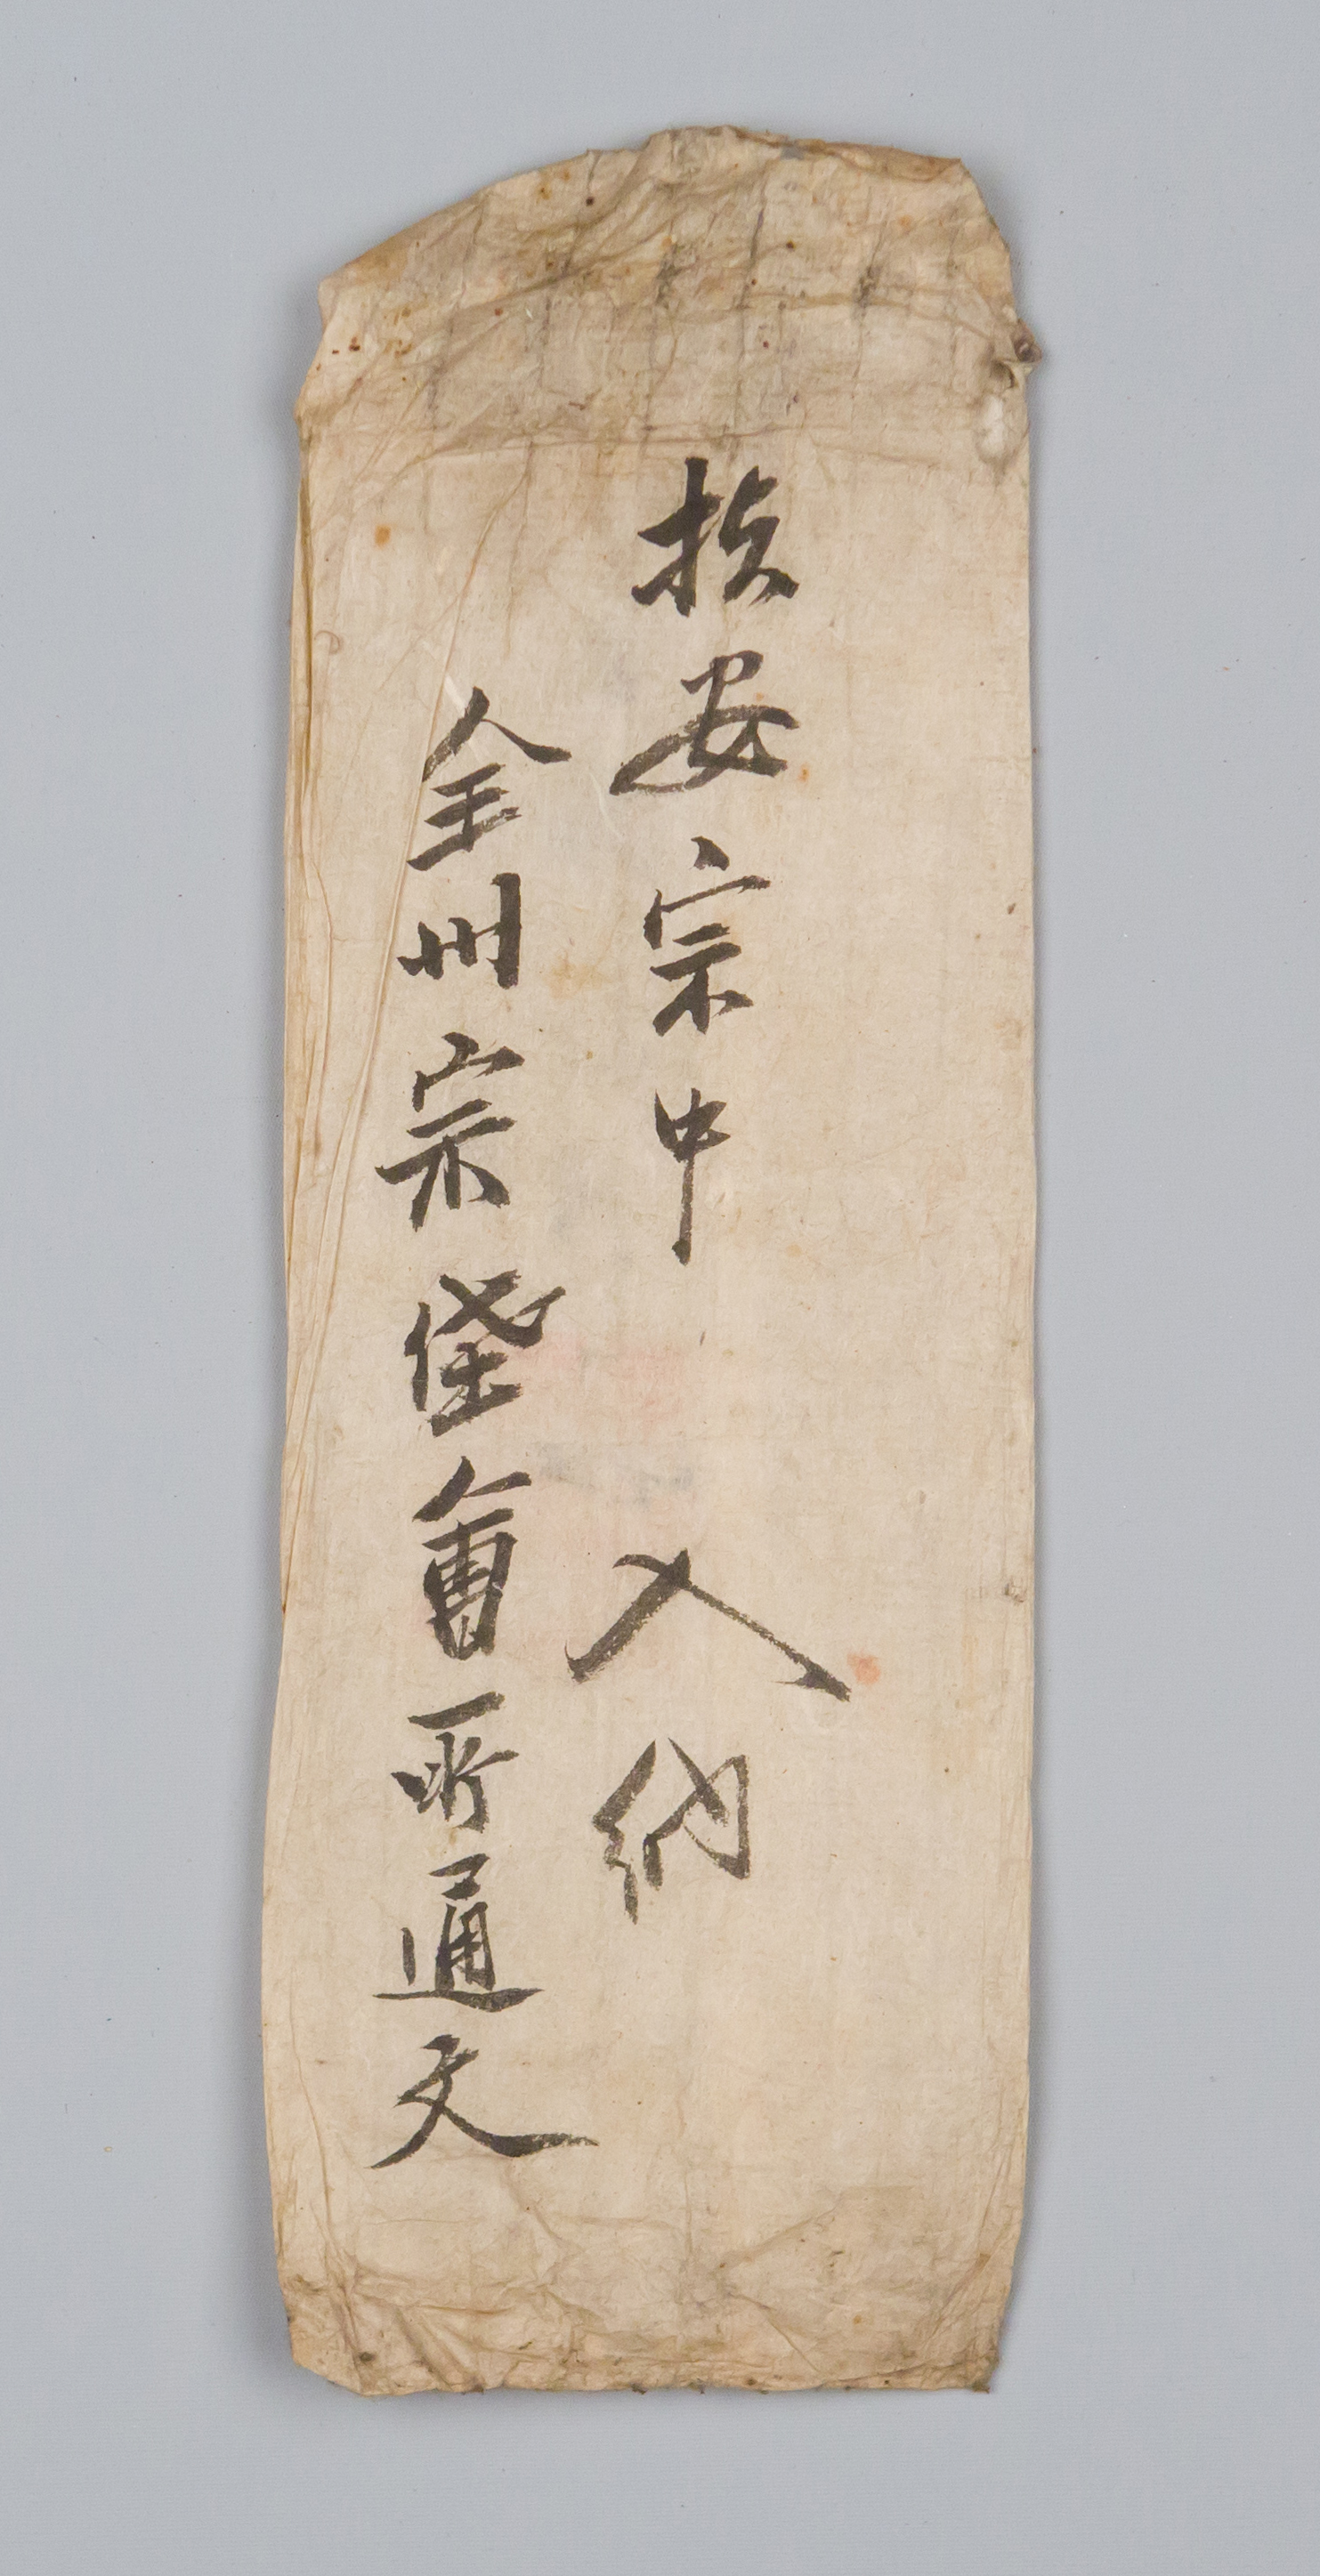 扶安宗中 入納
全州宗垈會所通文